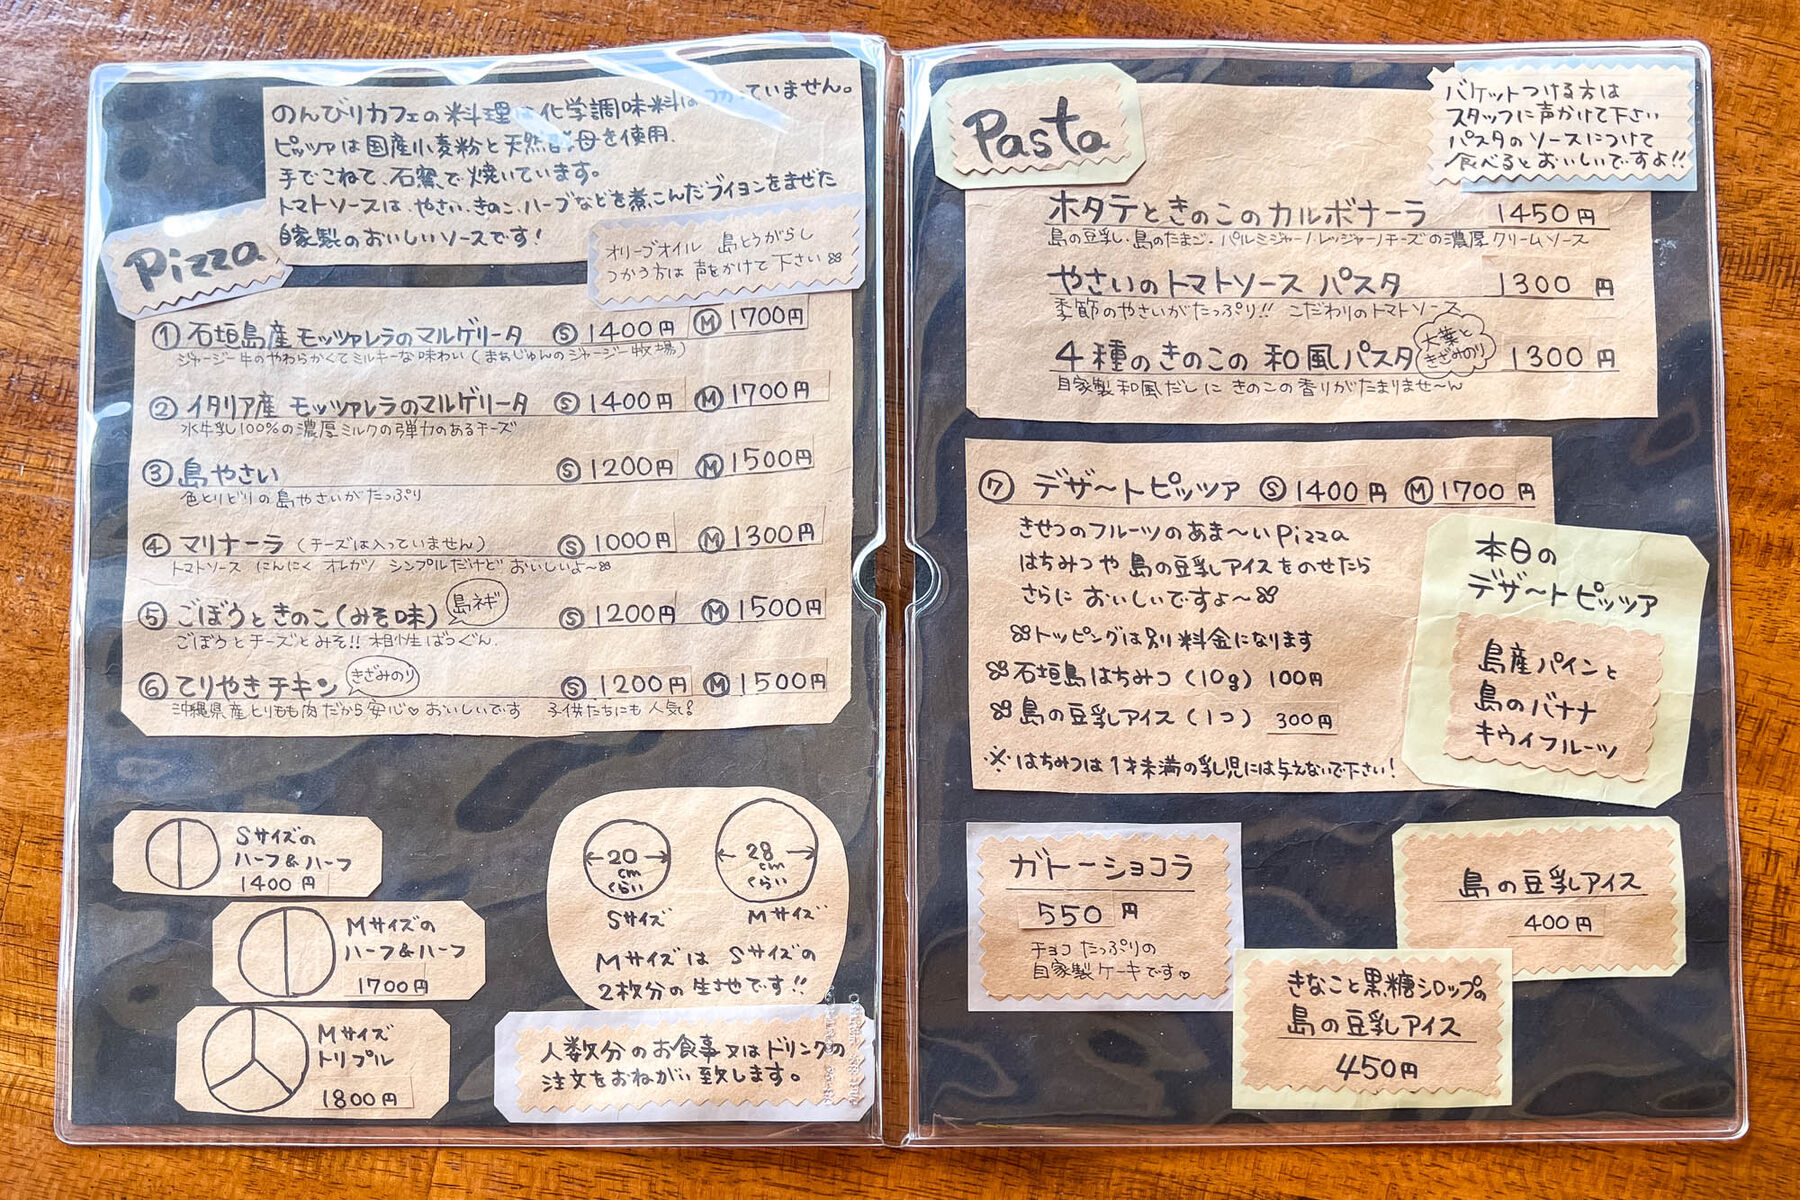 のんびりカフェの料理は化学調味料はつかっていません。
ピッツァは国産小麦粉と天然酵母を使用、
手でこねて、石窯で焼いています。
トマトソースは、やさい、きのこ、ハーブなどを煮こんだブイヨンをまぜた
自家製のおいしいソースです!
Pizza
オリーブオイル 島とうがらし
つかう方は 声をかけて下さい
① 石垣島産 モッツァレラのマルゲリータ Ⓢ 1400円 Ⓜ 1700円
ジャージー牛のやわらかくてミルキーな味わい (まぁじゅんのジャージー牧場)
② イタリア産 モッツァレラのマルゲリータ Ⓢ 1400円 Ⓜ 1700円
水牛乳100%の濃厚ミルクの弾力のあるチーズ
③ 島やさい Ⓢ 1200円 Ⓜ 1500円
色とりどりの島やさいがたっぷり
④ マリナーラ (チーズは入っていません) Ⓢ 1000円 Ⓜ 1300円
トマトソース にんにく オレガノ シンプルだけど おいしいよ〜
⑤ ごぼうときのこ(みそ味) 島ネギ Ⓢ 1200円 Ⓜ 1500円
ごぼうとチーズとみそ!! 相性ばつぐん。
⑥ てりやきチキン きざみのり Ⓢ 1200円 Ⓜ 1500円
沖縄県産とりもも肉だから安心♡おいしいです 子供たちにも人気!
Sサイズの
ハーフ&ハーフ
1400円
Mサイズの
ハーフ&ハーフ
1700円
Mサイズ
トリプル
1800円
20
cm
くらい
Sサイズ
28
cm
くらい
Mサイズ
Mサイズは Sサイズの
2枚分の生地です!!
人数分のお食事又はドリンクの
注文をおねがい致します。
Pasta
バケットつける方は
スタッフに声かけて下さい
パスタのソースにつけて
食べるとおいしいですよ!!
ホタテときのこのカルボナーラ 1450円
島の豆乳・島のたまご・パルミジャーノレッジャーノチーズの濃厚クリームソース
やさいのトマトソース パスタ 1300円
季節のやさいがたっぷり!! こだわりのトマトソース
4種のきのこの 和風パスタ 大葉と きざみのり 1300円
自家製和風だしに きのこの香りがたまりませ〜ん
⑦ デザートピッツァ Ⓢ 1400円 Ⓜ 1700円
きせつのフルーツのあま〜いPizza
はちみつや 島の豆乳アイスをのせたら
さらに おいしいですよ〜
トッピングは別料金になります
石垣島はちみつ (10g) 100円
島の豆乳アイス (1つ) 300円
※はちみつは1才未満の乳児には与えないで下さい!
本日の
デザートピッツァ
島産パインと
島のバナナ
キウイフルーツ
ガトーショコラ
550円
チョコたっぷりの
自家製ケーキです♡
島の豆乳アイス
400円
きなこと黒糖シロップの
島の豆乳アイス
450円